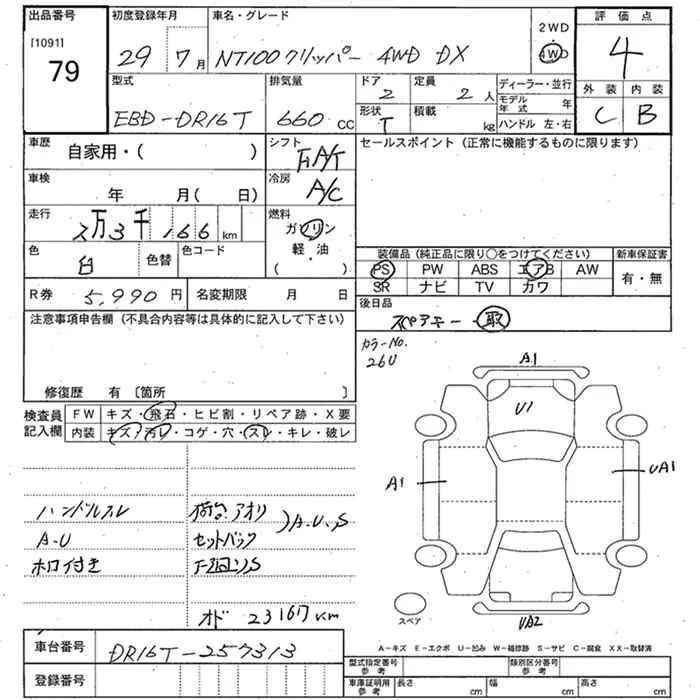 出品番号 初度登録年月 車名・グレード 2WD 評価点
[1091] 79 29 7月 NT100クリッパー 4WD DX 4WD 4
型式 排気量 ドア 定員 ディーラー・並行 外装 内装
EBD-DR16T 660cc 2 2人 モデル年式 年 C B
形状 積載 ハンドル 左・右
T kg
車歴 自家用・( ) シフト セールスポイント (正常に機能するものに限ります)
A/T
車検 年 月( 日) 冷房 A/C
走行 2万3千166km 燃料 ガソリン
軽・油
( )
色 白 色替 色コード
装備品(純正品に限り○をつけてください) 新車保証書
PS PW ABS エアB AW 有・無
SR ナビ TV カワ
R券 5,990円 名変期限 月 日 後日品
スペアキー 取
注意事項申告欄 (不具合内容等は具体的に記入して下さい)
カラーNo.
26U
修復歴 有〔箇所 〕
検査員記入欄
FW キズ・飛石・ヒビ割・リペア跡・X要
内装 キズ・汚レ・コゲ・穴・スレ・キレ・破レ
A1
U1
A1 UA1
ハンドルスレ 荷台.アオリ )A.U.S
A-U セットバック
ホロ付き 下回リ.S
オド 23167km
スペア UA2
A-キズ E-エクボ U-凹み W-補修跡 S-サビ C-腐食 XX-取替済
車台番号 DR16T-257313
登録番号
型式指定番号 参考 類別区分番号 参考
車庫証明用 参考 長さ cm 幅 cm 高さ cm